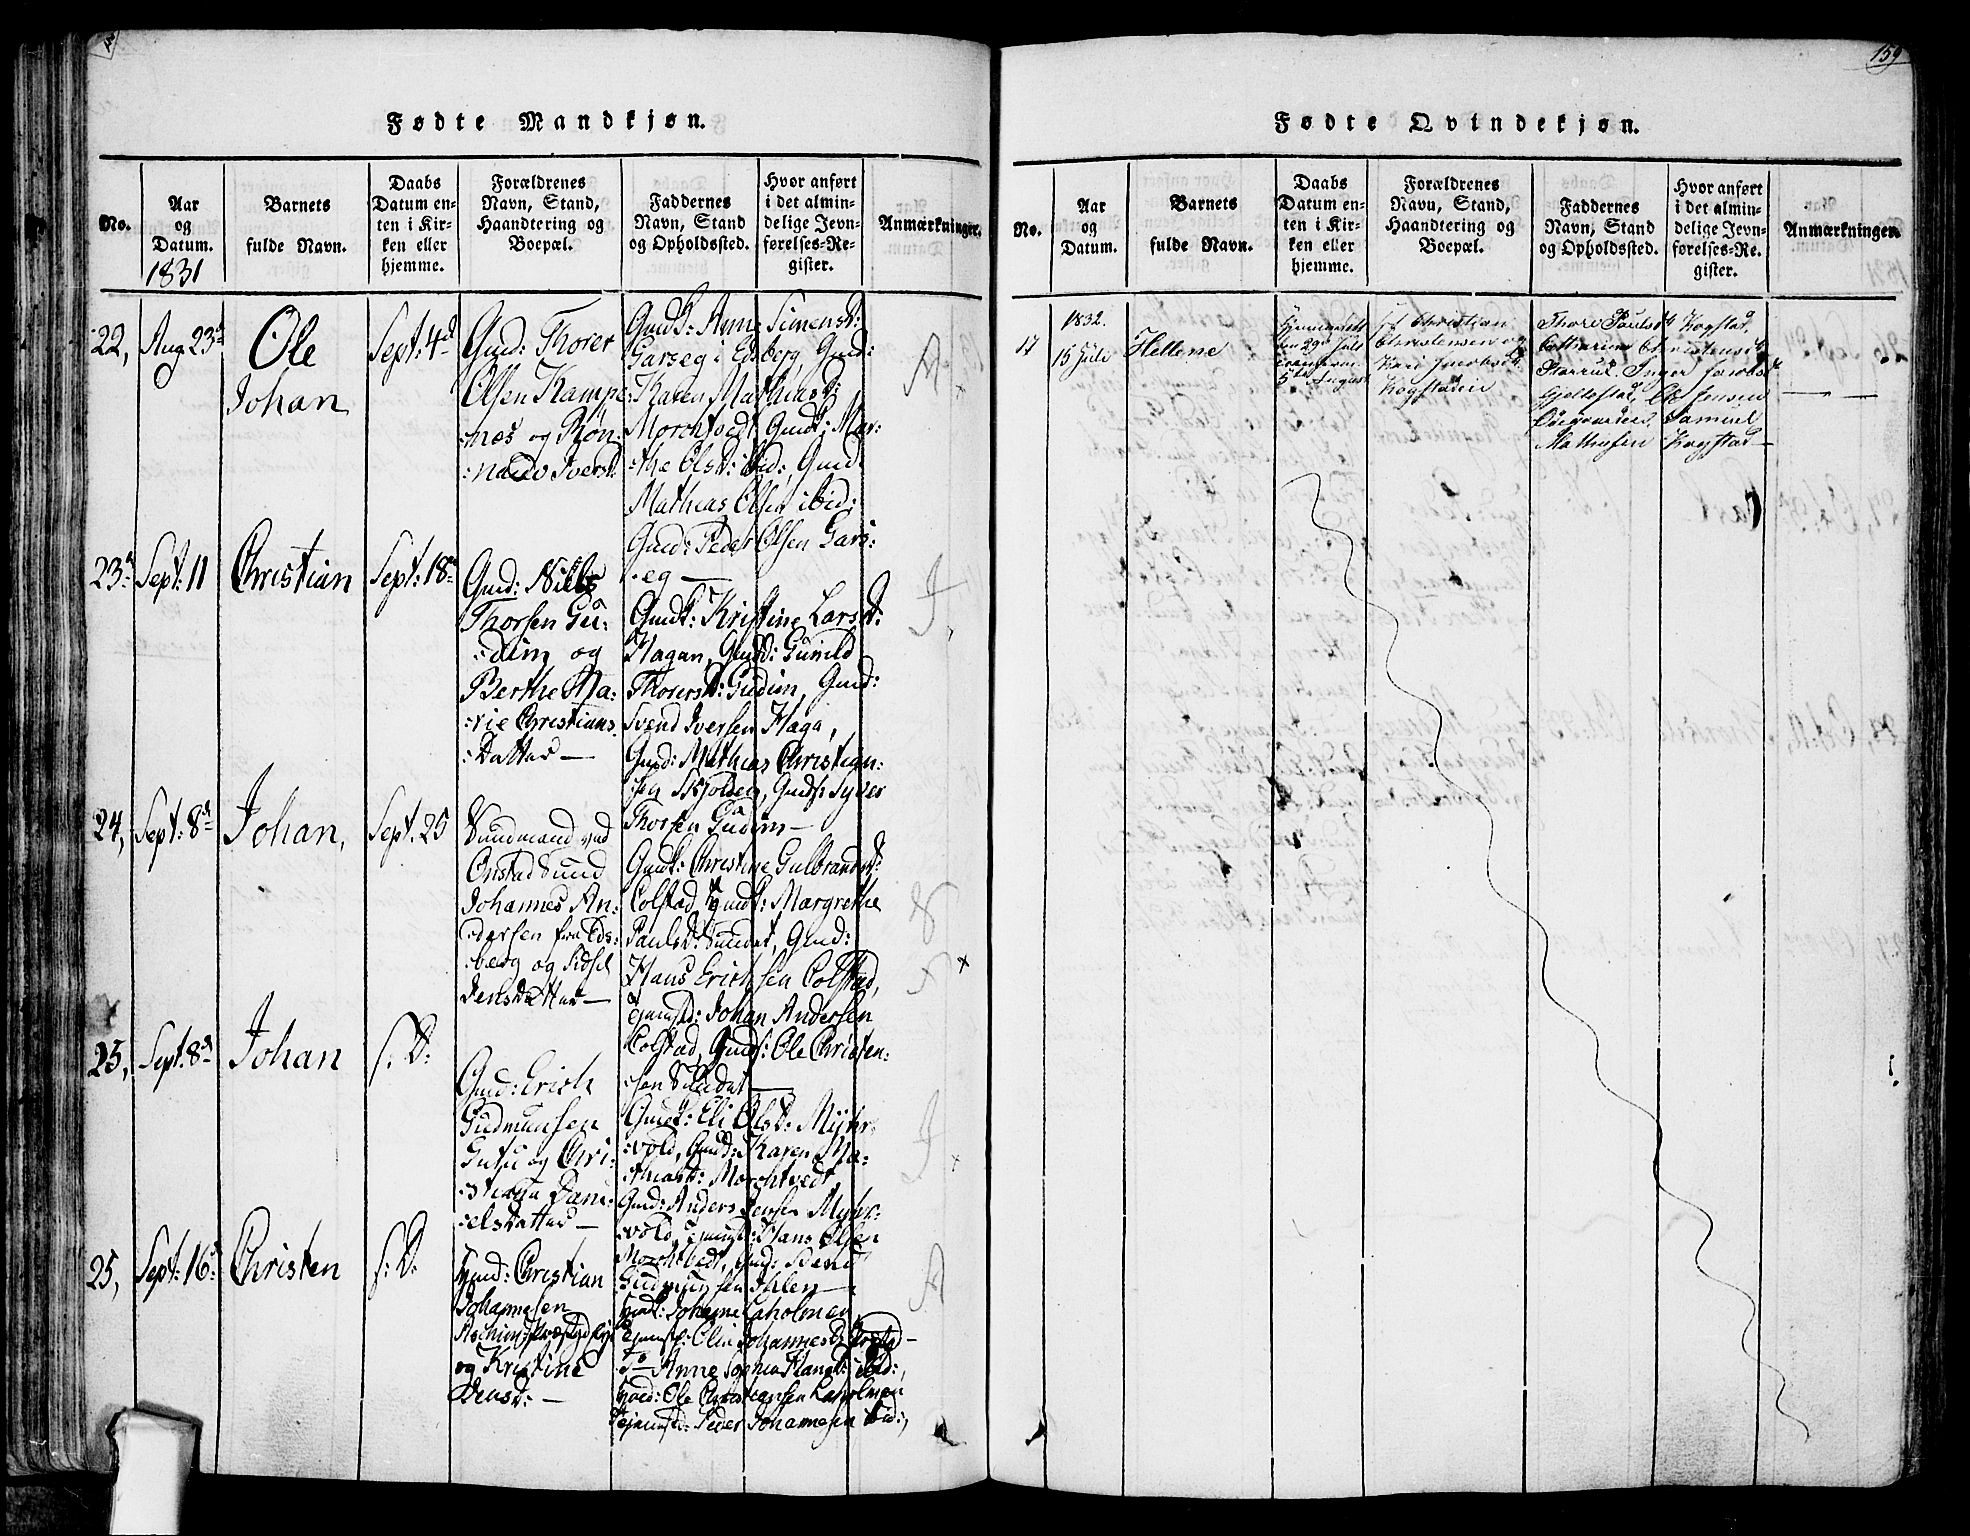 159
Fødte Mandkjøn.
No.
Aar
og
Datum.
1831
Barnets
fulde Navn.
Daabs
Datum en-
ten i Kir-
ken eller
hjemme.
Forældrenes
Navn, Stand,
Haandtering og
Boepæl.
Faddernes
Navn, Stand
og Opholdssted.
Hvor anført
i det almin-
delige Jevn-
førelses-Re-
gister.
Anmærkninger.
22,
Aug 23d
Ole
Johan
Sept: 4d
Gmd: Thorer
Olsen Kampe
:næs og Rön:
Gmdk: Anne Simensd:
Garseg i Edsberg, Gmd:
Karen Mathiasd:
Morchtvedt, Gmdk: Mar:
:the Olsd: ibid; Gmd:
Mathias Olsen ibid;
Gmd: Peder Olsen Gars:
:eg —
23d
Sept: 11
Christian
Sept: 18d
Gmd: Niels
Thorsen Gu:
:dim og
Berthe Ma:
:rie Christians
:Datter —
Gmdk: Kristine Larsd:
Hagan, Gmdd: Gunild
Thorersd: Gudim, Gmd:
Svend Iversen Haga,
Gmd: Mathias Christian:
:sen Skjolden, Gmds: Syver
Thorsen Gudim —
24,
Sept: 8d
Johan,
Sept. 25
Sundmand ved
Onstad Sund
Johannes An:
:dersen fra Eds:
:berg og Sidsel
Jensdatter —
Gmdk: Christine Gulbrandsd:
Colstad, Gmdk: Margrethe
Paulsd: Sundet, Gmd:
Hans Erichsen Colstad,
Johan Andersen
Colstad, Gmds: Ole Christen:
:sen Sundet —
25,
Sept: 8d
Johan
s. D:
Gmd: Erich
Gudmunsen
og Chri:
:stiana Dani:
:elsdatter —
Gmdk: Eli Olsd: Myhr:
:vold, Gmdd: Karen Ma:
:thiasd: Morchtvedt,
Gmd: Anders Jensen Myhr:
:vold, Hans Olsen
Morchtvedt, Gmd: Svend
Gudmunsen Ihlen —
25,
Sept: 16d
Christen
s: D:
Gmd: Christian
Johannesen
og Kristine
Jensd: —
Gmdk: Johanne Laholmen
Olia Johannesd:
Anne Sophia Hansd: ibid:,
Gmd: Ole Christiansen Laholmen
Peder Johannesen ibid:,
Fødte Qvindekjøn.
No.
Aar
og
Datum.
Barnets
fulde Navn.
Daabs
Datum en-
ten i Kir-
ken eller
hjemme.
Forældrenes
Navn, Stand,
Haandtering og
Boepæl.
Faddernes
Navn, Stand
og Opholdssted.
Hvor anført
i det almin-
delige Jevn-
førelses-Re-
gister.
Anmærkninger.
17
1832.
15 Juli
Hellene
Hjemmedøbt
den 29de Juli
5te August
Christian
Christensen og
Kari Jacobsd:
Kogstadie
Thore Paulsd: Kogstad,
Cathrine Christensd:
Inger Jacobsd:
Gjeltestad, Ole Jensen
Ödegaarden, Samuel
Mathisen Kogstad —